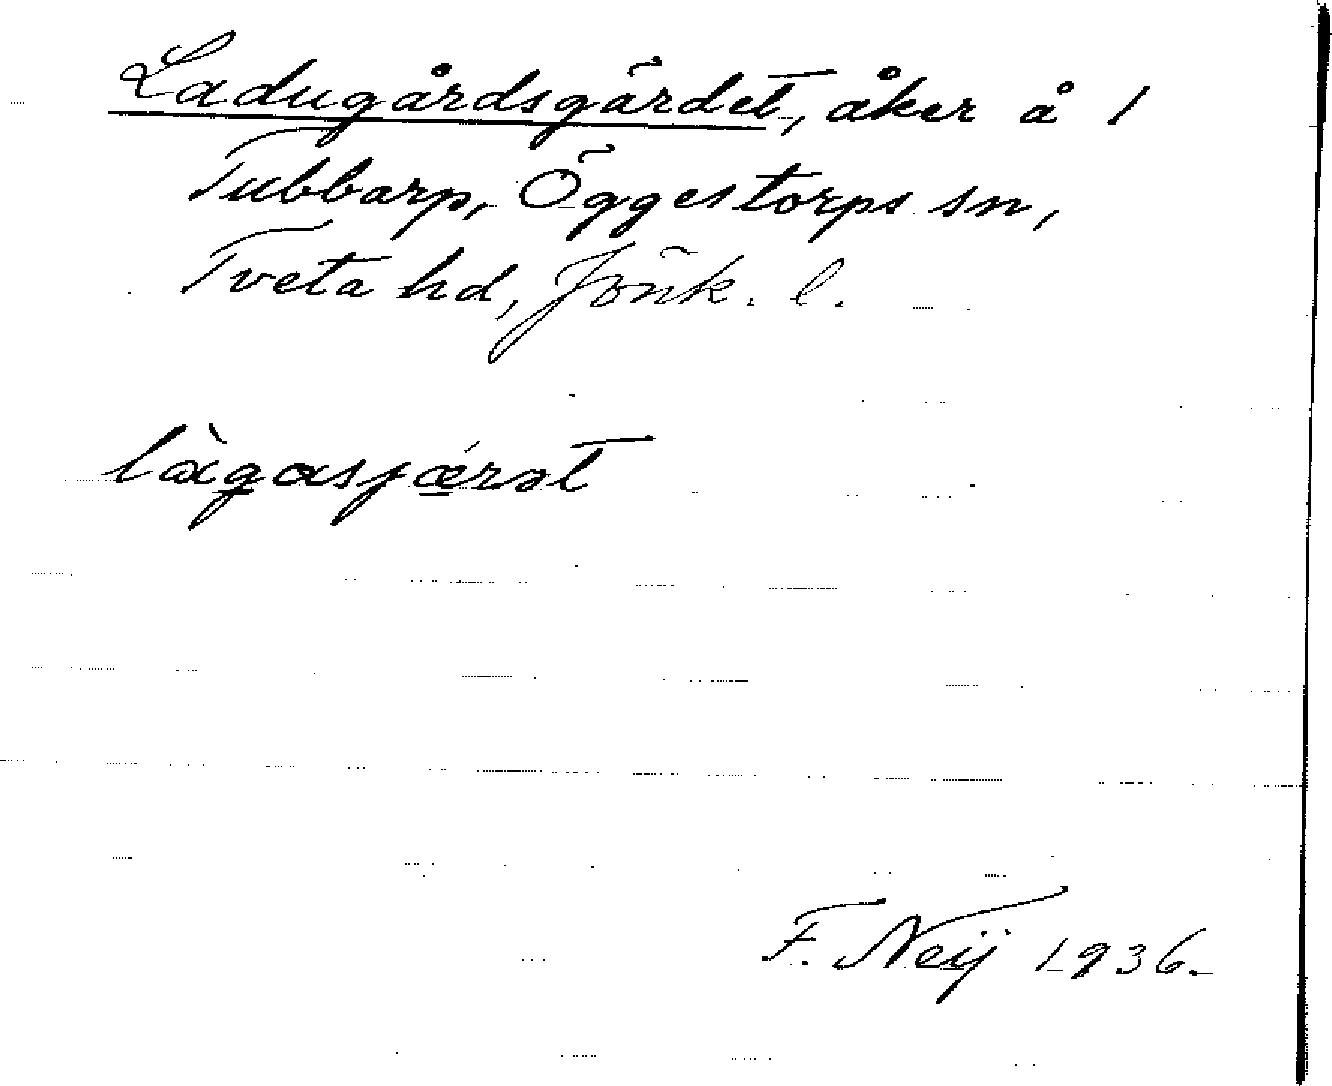 Ladugårdsgärdet, åker å 1
Tubbarp, Öggestorps sn,
Tveta hd, Jönk. l.
làgasjǽrət
F. Neij 1936.